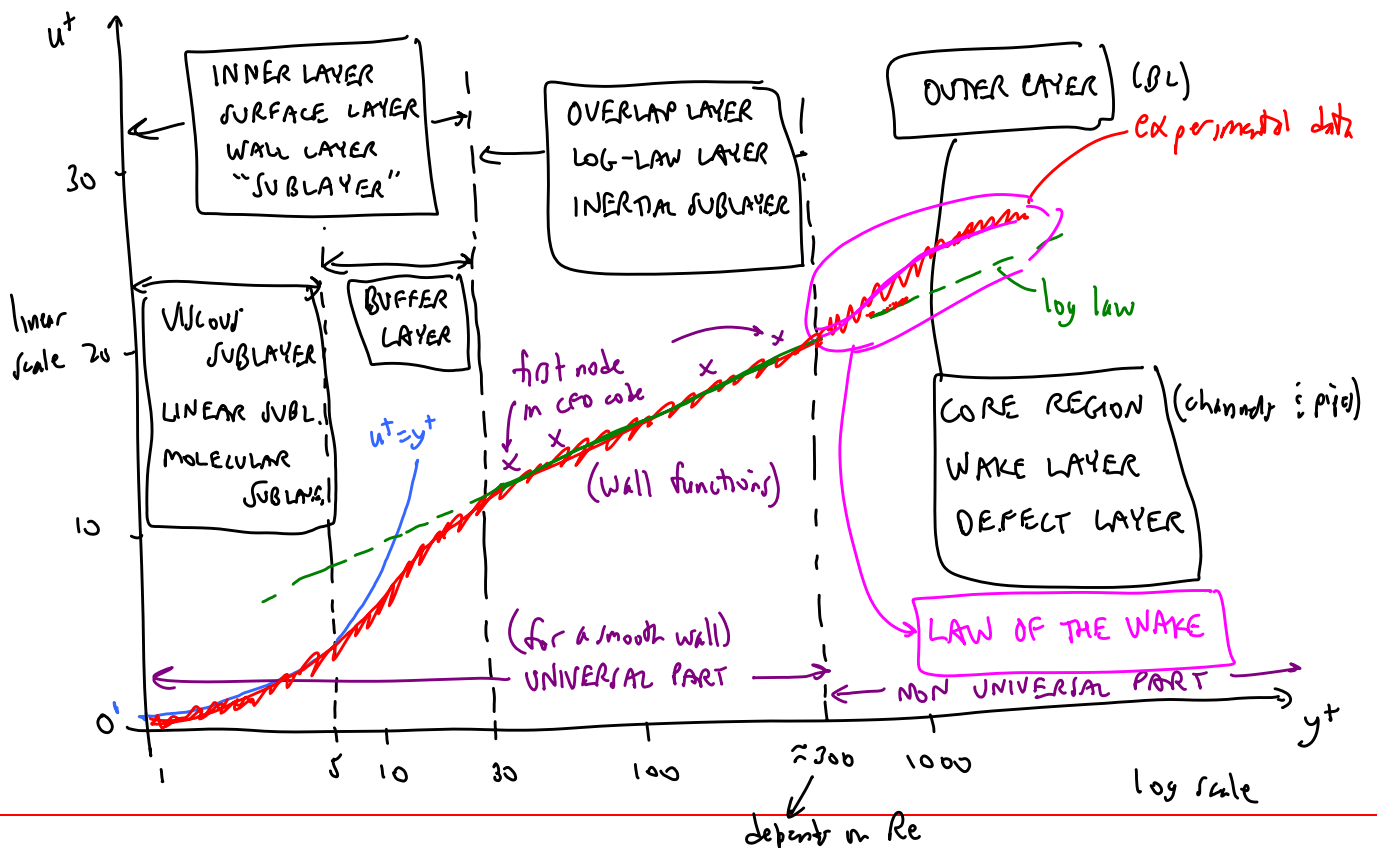 u+
INNER LAYER
SURFACE LAYER
WALL LAYER
"SUBLAYER"
OVERLAP LAYER
LOG-LAW LAYER
INERTIAL SUBLAYER
OUTER LAYER (BL)
experimental data
30
linear
scale
20
10
0
VISCOUS
SUBLAYER
LINEAR SUBL.
MOLECULAR
SUBLAY.
BUFFER
LAYER
u+=y+
first node
in CFD code
(wall functions)
log law
CORE REGION (channels & pipes)
WAKE LAYER
DEFECT LAYER
LAW OF THE WAKE
(for a smooth wall)
UNIVERSAL PART
NON UNIVERSAL PART
y+
1
5
10
30
100
≈300
1000
log scale
depends on Re